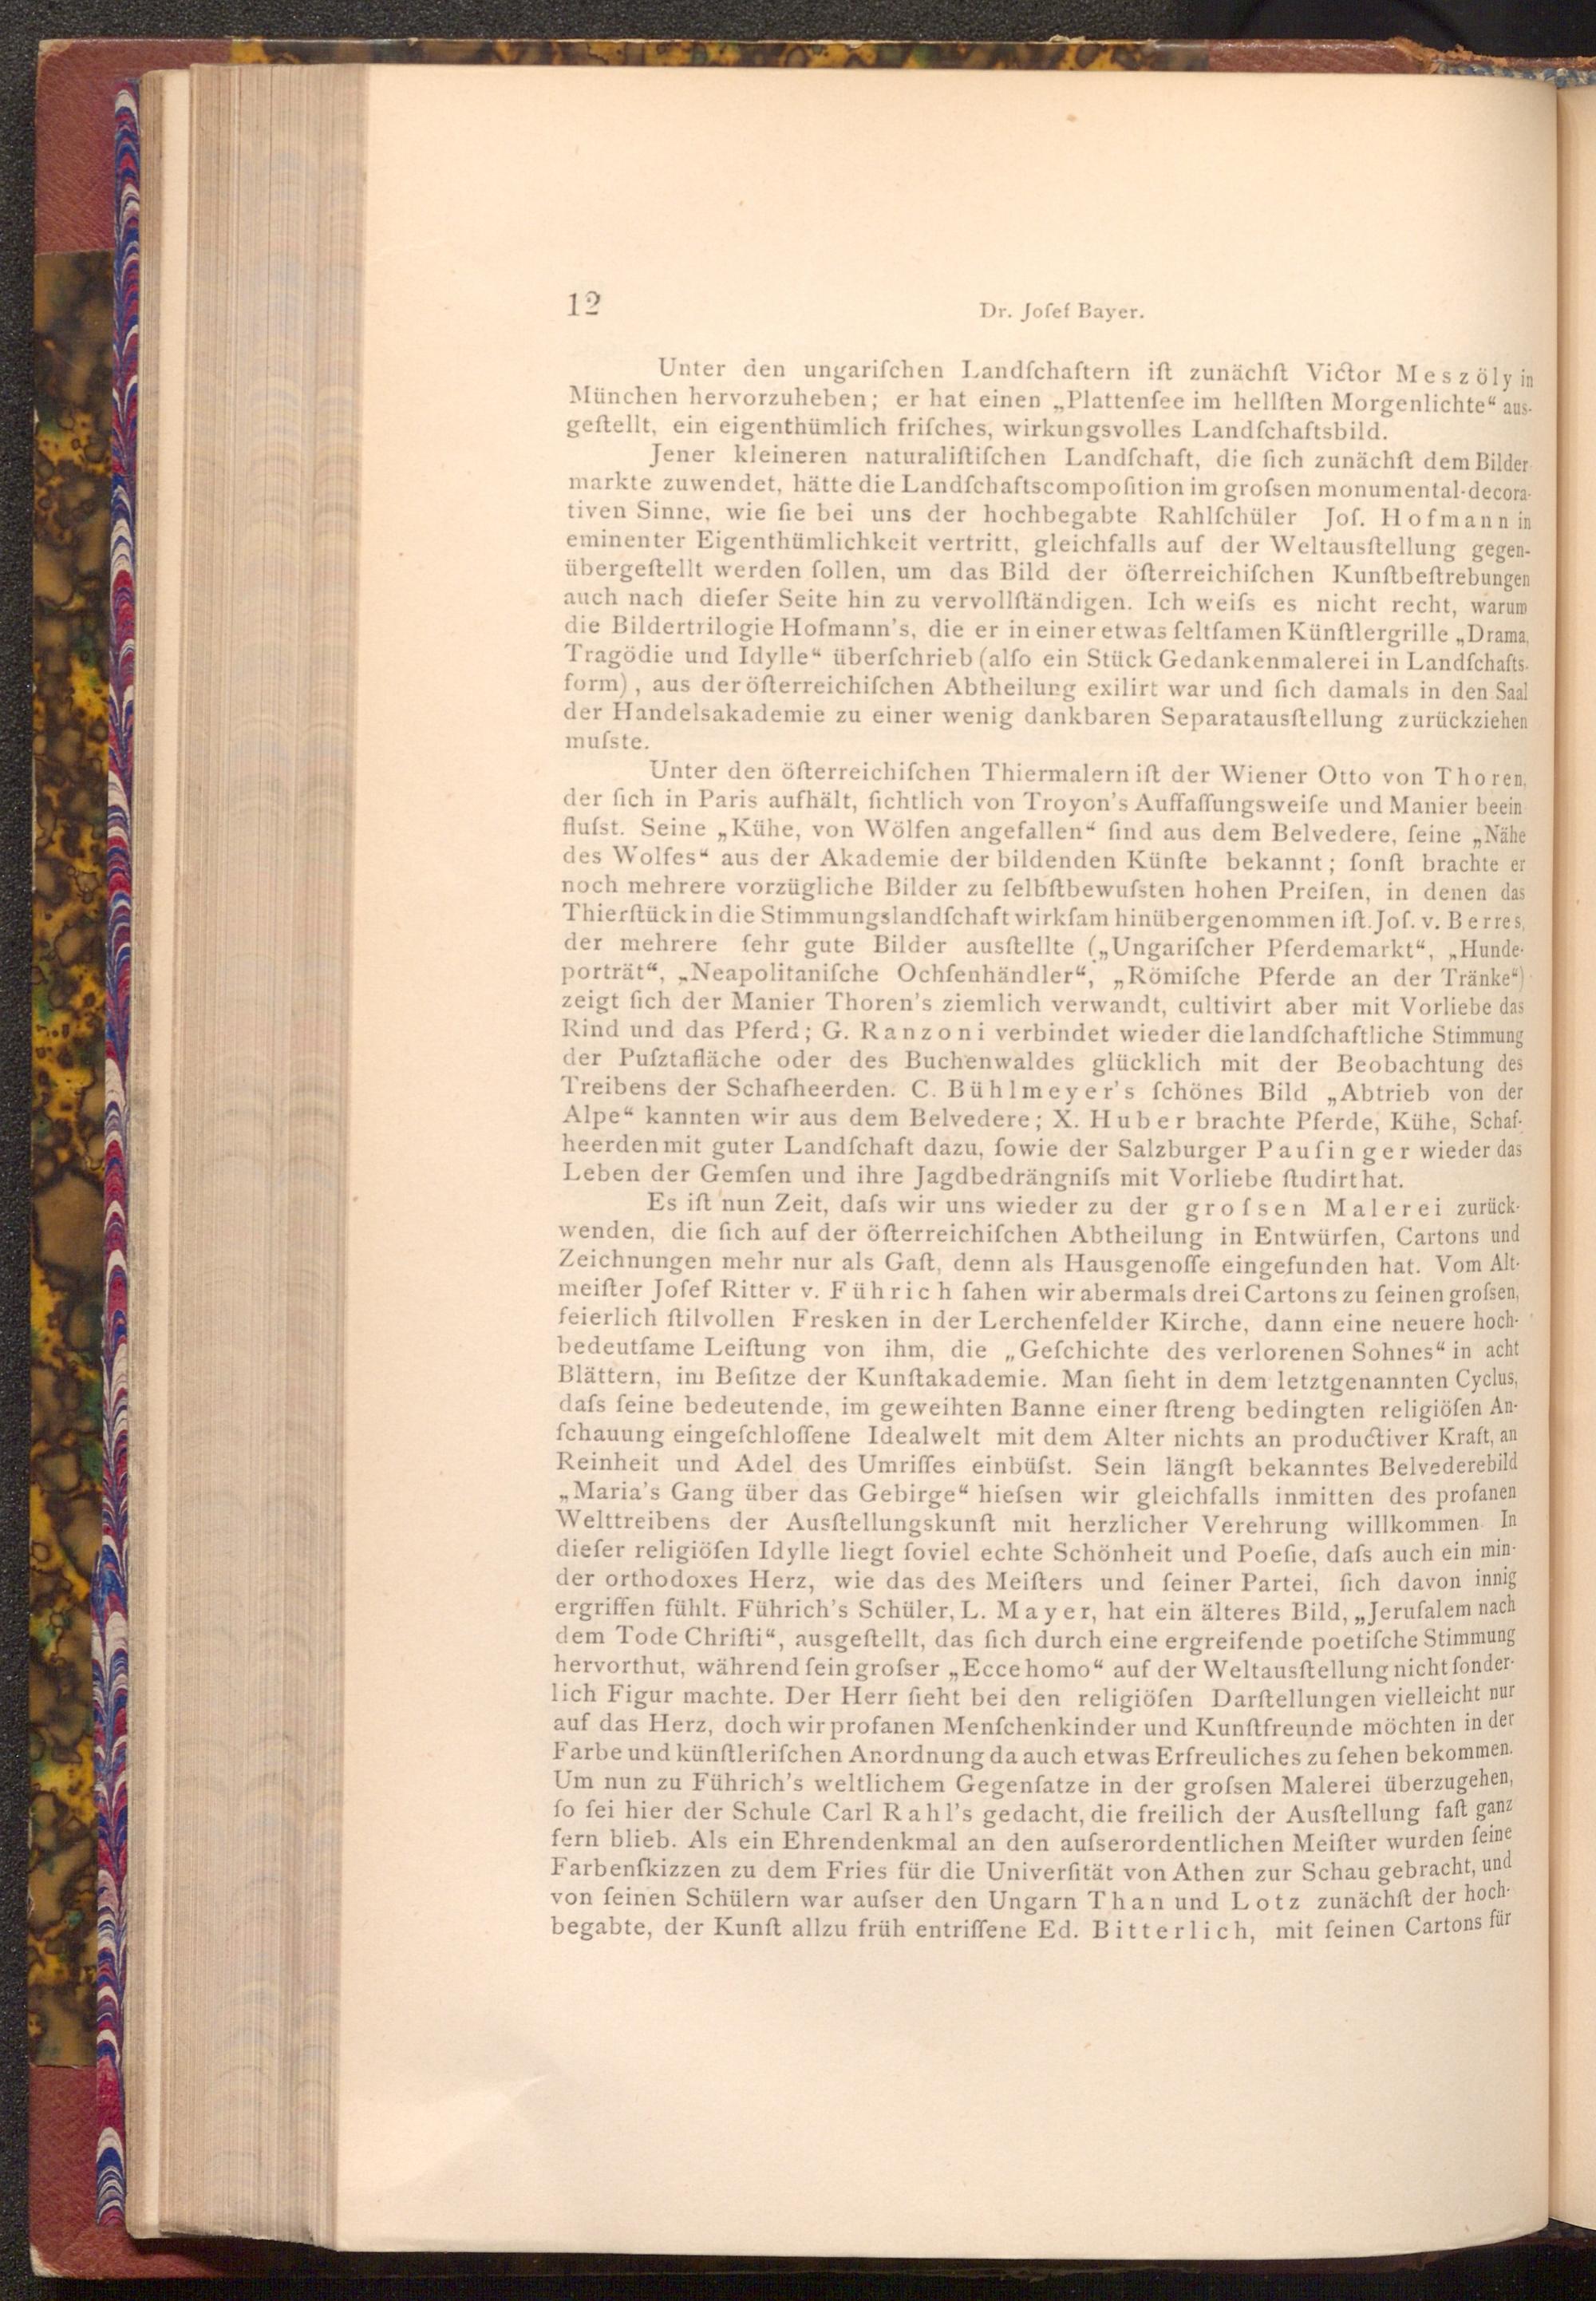 12
Dr. Joſef Bayer.
Unter den ungariſchen Landſchaftern iſt zunächſt Victor Meszöly in
München hervorzuheben; er hat einen „Plattenſee im hellſten Morgenlichte“ aus-
geſtellt, ein eigenthümlich friſches, wirkungsvolles Landſchaftsbild.
Jener kleineren naturaliſtiſchen Landſchaft, die ſich zunächſt dem Bilder
markte zuwendet, hätte die Landſchaftscompoſition im groſsen monumental-decora-
tiven Sinne, wie ſie bei uns der hochbegabte Rahlſchüler Joſ. Hofmann in
eminenter Eigenthümlichkeit vertritt, gleichfalls auf der Weltausſtellung gegen-
übergeſtellt werden ſollen, um das Bild der öſterreichiſchen Kunſtbeſtrebungen
auch nach dieſer Seite hin zu vervollſtändigen. Ich weiſs es nicht recht, warum
die Bildertrilogie Hofmann's, die er in einer etwas ſeltſamen Künſtlergrille „Drama,
Tragödie und Idylle“ überſchrieb (alſo ein Stück Gedankenmalerei in Landſchafts-
form), aus der öſterreichiſchen Abtheilung exilirt war und ſich damals in den Saal
der Handelsakademie zu einer wenig dankbaren Separatausſtellung zurückziehen
muſste.
Unter den öſterreichiſchen Thiermalern iſt der Wiener Otto von Thoren,
der ſich in Paris aufhält, ſichtlich von Troyon's Auffaſſungsweiſe und Manier beein
fluſst. Seine „Kühe, von Wölfen angefallen“ ſind aus dem Belvedere, ſeine „Nähe
des Wolfes“ aus der Akademie der bildenden Künſte bekannt; ſonſt brachte er
noch mehrere vorzügliche Bilder zu ſelbſtbewuſsten hohen Preiſen, in denen das
Thierſtück in die Stimmungslandſchaft wirkſam hinübergenommen iſt. Joſ. v. Berres,
der mehrere ſehr gute Bilder ausſtellte („Ungariſcher Pferdemarkt“, „Hunde-
porträt“, „Neapolitaniſche Ochſenhändler“, „Römiſche Pferde an der Tränke“)
zeigt ſich der Manier Thoren's ziemlich verwandt, cultivirt aber mit Vorliebe das
Rind und das Pferd; G. Ranzoni verbindet wieder die landſchaftliche Stimmung
der Puſztafläche oder des Buchenwaldes glücklich mit der Beobachtung des
Treibens der Schafheerden. C. Bühlmeyer's ſchönes Bild „Abtrieb von der
Alpe“ kannten wir aus dem Belvedere; X. Huber brachte Pferde, Kühe, Schaf-
heerden mit guter Landſchaft dazu, ſowie der Salzburger Pauſinger wieder das
Leben der Gemſen und ihre Jagdbedrängniſs mit Vorliebe ſtudirt hat.
Es iſt nun Zeit, daſs wir uns wieder zu der groſsen Malerei zurück-
wenden, die ſich auf der öſterreichiſchen Abtheilung in Entwürfen, Cartons und
Zeichnungen mehr nur als Gaſt, denn als Hausgenoſſe eingefunden hat. Vom Alt-
meiſter Joſef Ritter v. Führich ſahen wir abermals drei Cartons zu ſeinen groſsen,
feierlich ſtilvollen Fresken in der Lerchenfelder Kirche, dann eine neuere hoch-
bedeutſame Leiſtung von ihm, die „Geſchichte des verlorenen Sohnes“ in acht
Blättern, im Beſitze der Kunſtakademie. Man ſieht in dem letztgenannten Cyclus,
daſs ſeine bedeutende, im geweihten Banne einer ſtreng bedingten religiöſen An-
ſchauung eingeſchloſſene Idealwelt mit dem Alter nichts an productiver Kraft, an
Reinheit und Adel des Umriſſes einbüſst. Sein längſt bekanntes Belvederebild
„Maria's Gang über das Gebirge“ hieſsen wir gleichfalls inmitten des profanen
Welttreibens der Ausſtellungskunſt mit herzlicher Verehrung willkommen. In
dieſer religiöſen Idylle liegt ſoviel echte Schönheit und Poeſie, daſs auch ein min-
der orthodoxes Herz, wie das des Meiſters und ſeiner Partei, ſich davon innig
ergriffen fühlt. Führich's Schüler, L. Mayer, hat ein älteres Bild, „Jeruſalem nach
dem Tode Chriſti“, ausgeſtellt, das ſich durch eine ergreifende poetiſche Stimmung
hervorthut, während ſein groſser „Ecce homo“ auf der Weltausſtellung nicht ſonder-
lich Figur machte. Der Herr ſieht bei den religiöſen Darſtellungen vielleicht nur
auf das Herz, doch wir profanen Menſchenkinder und Kunſtfreunde möchten in der
Farbe und künſtleriſchen Anordnung da auch etwas Erfreuliches zu ſehen bekommen.
Um nun zu Führich's weltlichem Gegenſatze in der groſsen Malerei überzugehen,
ſo ſei hier der Schule Carl Rahl's gedacht, die freilich der Ausſtellung faſt ganz
fern blieb. Als ein Ehrendenkmal an den auſserordentlichen Meiſter wurden ſeine
Farbenſkizzen zu dem Fries für die Univerſität von Athen zur Schau gebracht, und
von ſeinen Schülern war auſser den Ungarn Than und Lotz zunächſt der hoch-
begabte, der Kunſt allzu früh entriſſene Ed. Bitterlich, mit ſeinen Cartons für